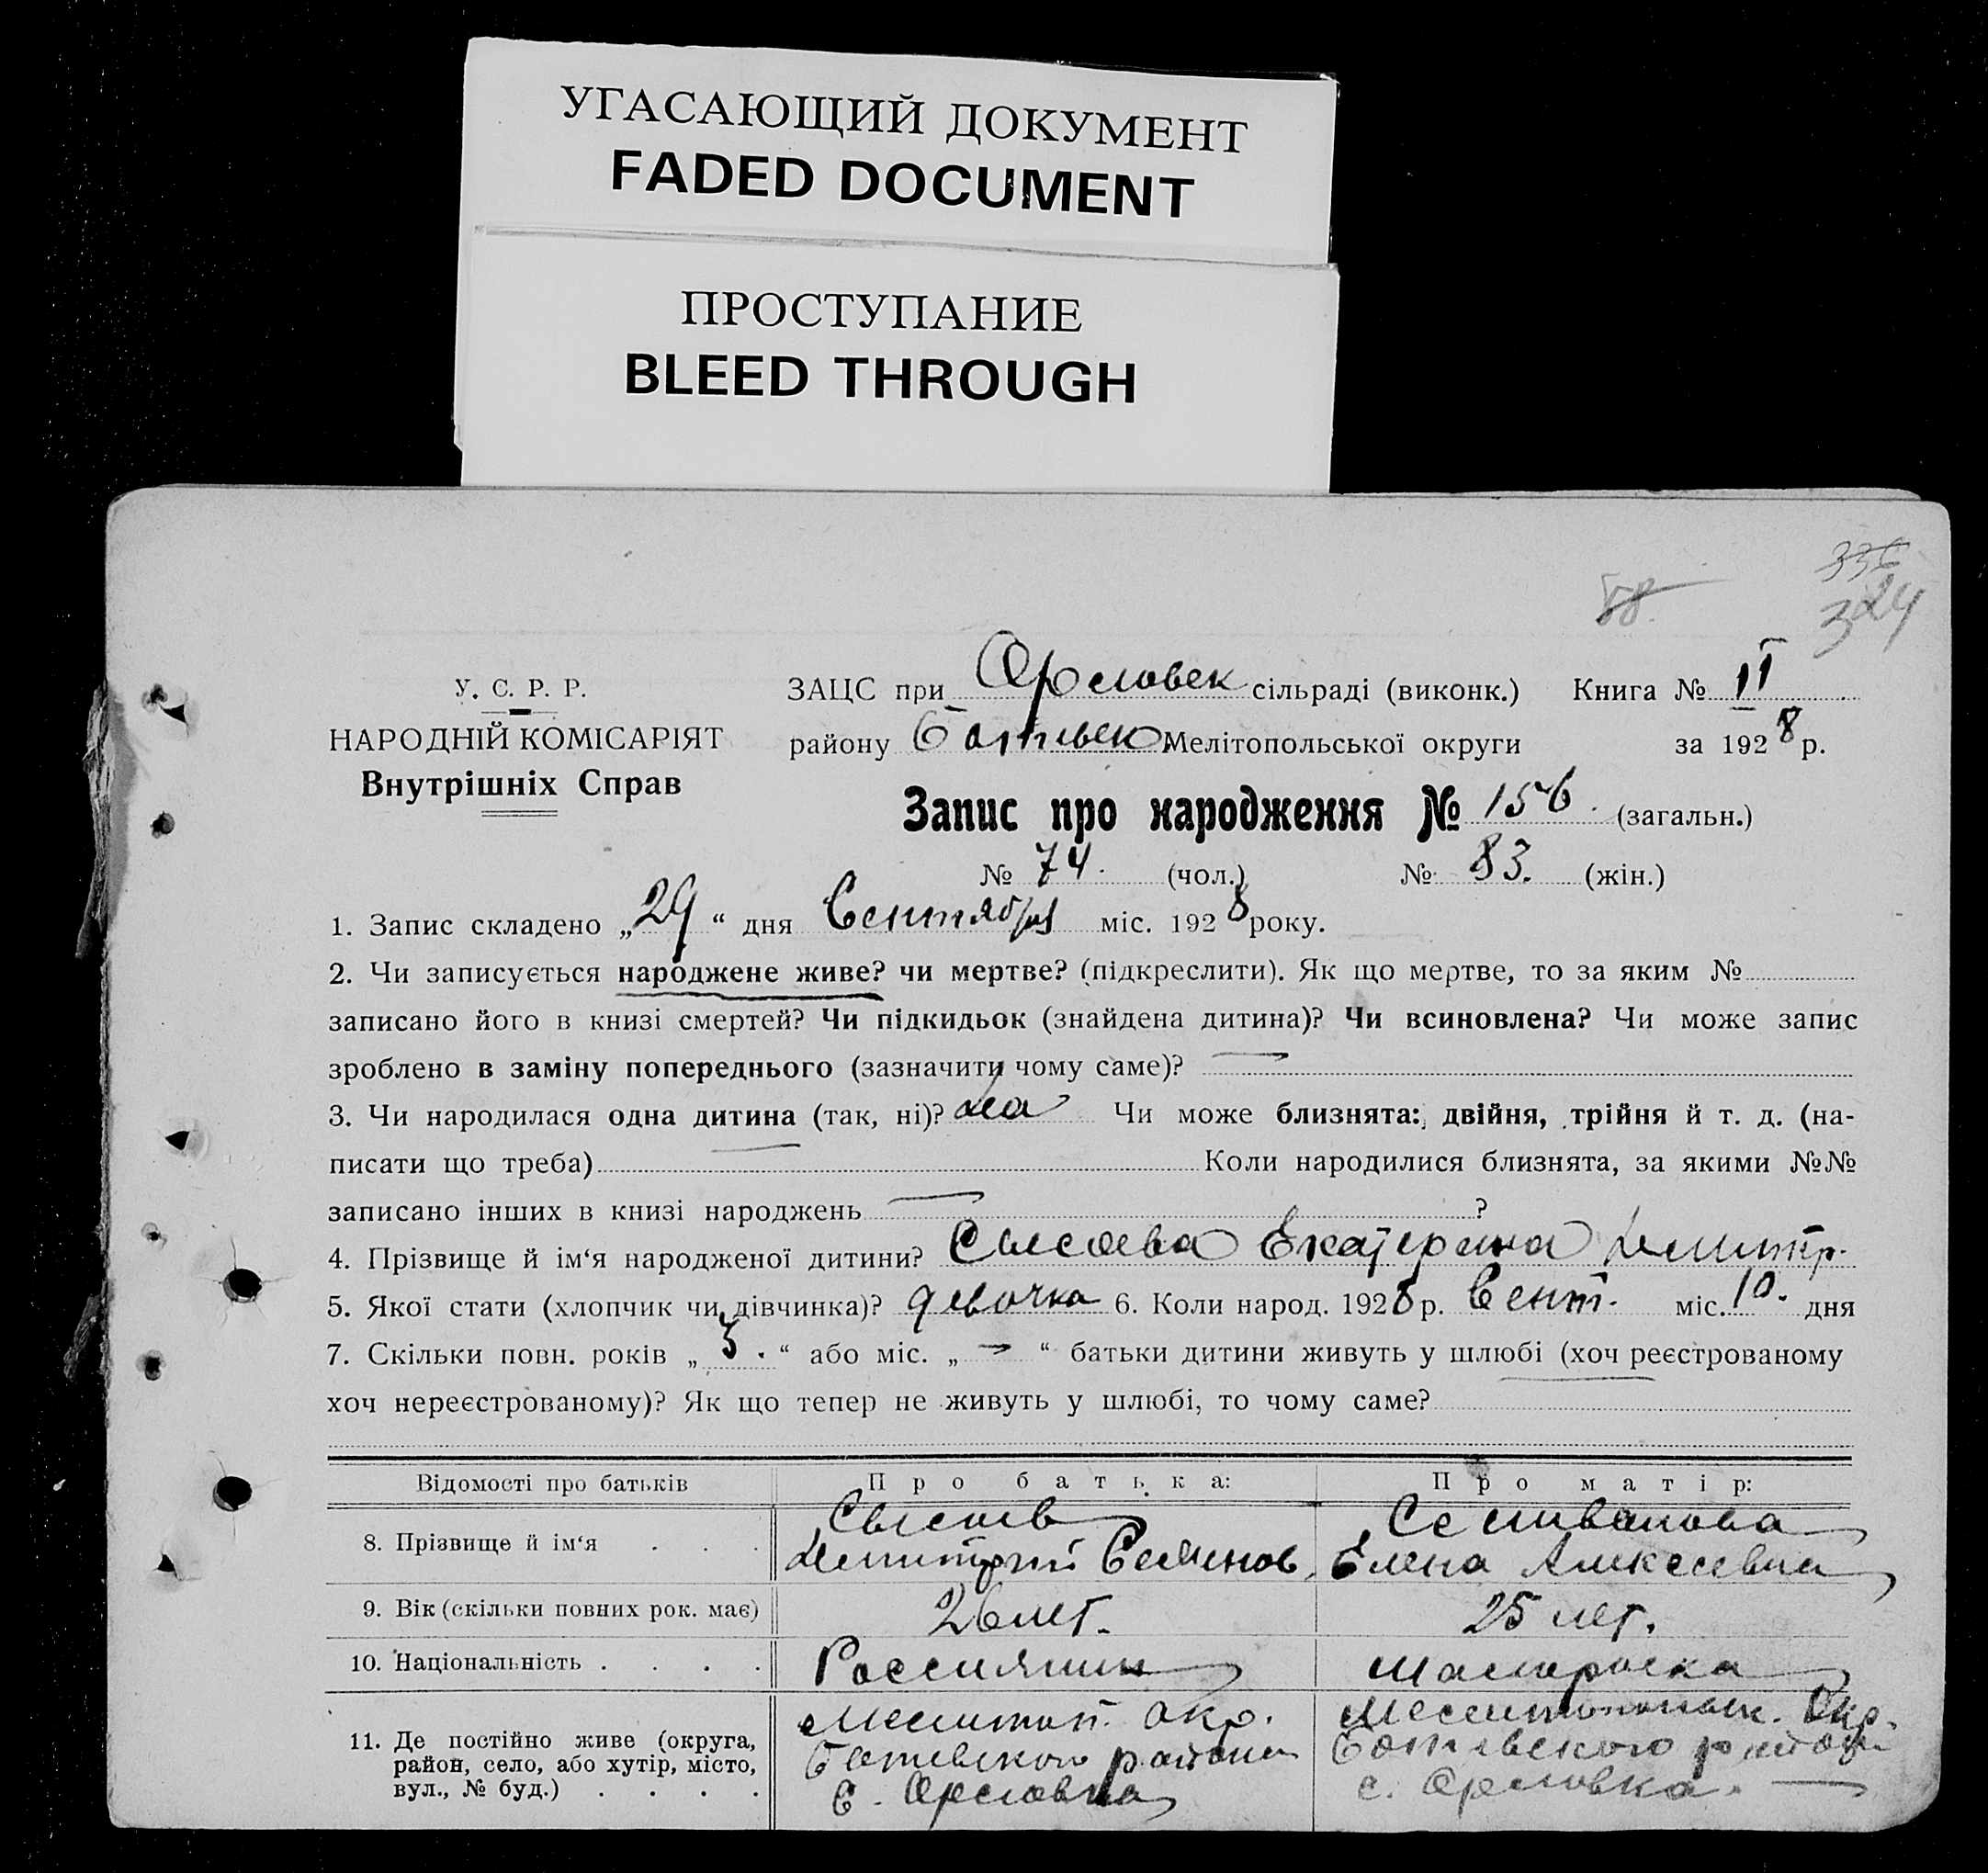 УГАСАЮЩИЙ ДОКУМЕНТ
FADED DOCUMENT
ПРОСТУПАНИЕ
BLEED THROUGH
336
88.
324
У. С. Р. Р.
НАРОДНІЙ КОМІСАРІЯТ
Внутрішніх Справ
ЗАЦС при Орловск сільраді (виконк.) Книга № II
району Ботьевск Мелітопольської округи за 1928 р.
Запис про народження № 156. (загальн.)
№ 74. (чол.) № 83. (жін.)
1. Запис складено „29“ дня Сентября міс. 1928 року.
2. Чи записується народжене живе? чи мертве? (підкреслити). Як що мертве, то за яким №
записано його в книзі смертей? Чи підкидьок (знайдена дитина)? Чи всиновлена? Чи може запис
зроблено в заміну попереднього (зазначити чому саме)? —
3. Чи народилася одна дитина (так, ні)? да Чи може близнята: двійня, трійня й т. д. (на-
писати що треба) — Коли народилися близнята, за якими №№
записано інших в книзі народжень — ?
4. Прізвище й ім‘я народженої дитини? Сысоева Екатерина Димитр.
5. Якої стати (хлопчик чи дівчинка)? девочка 6. Коли народ. 1928 р. Сент. міс. 10. дня
7. Скільки повн. років „3.“ або міс. „—“ батьки дитини живуть у шлюбі (хоч реєстрованому
хоч нереєстрованому)? Як що тепер не живуть у шлюбі, то чому саме?
Відомості про батьків Про батька: Про матір:
8. Прізвище й ім‘я . . . Сысоев Димитрий Семенов. Селиванова Елена Алексеевна
9. Вік (скільки повних рок. має) 26 лет. 25 лет.
10. Національність . . . . Россиянин
11. Де постійно живе (округа, район, село, або хутір, місто, вул., № буд.) . . . . Мелитоп. Окр. Ботьевского района С. Орловка Мелитопольск. Окр. Ботьевского района с. Орловка.